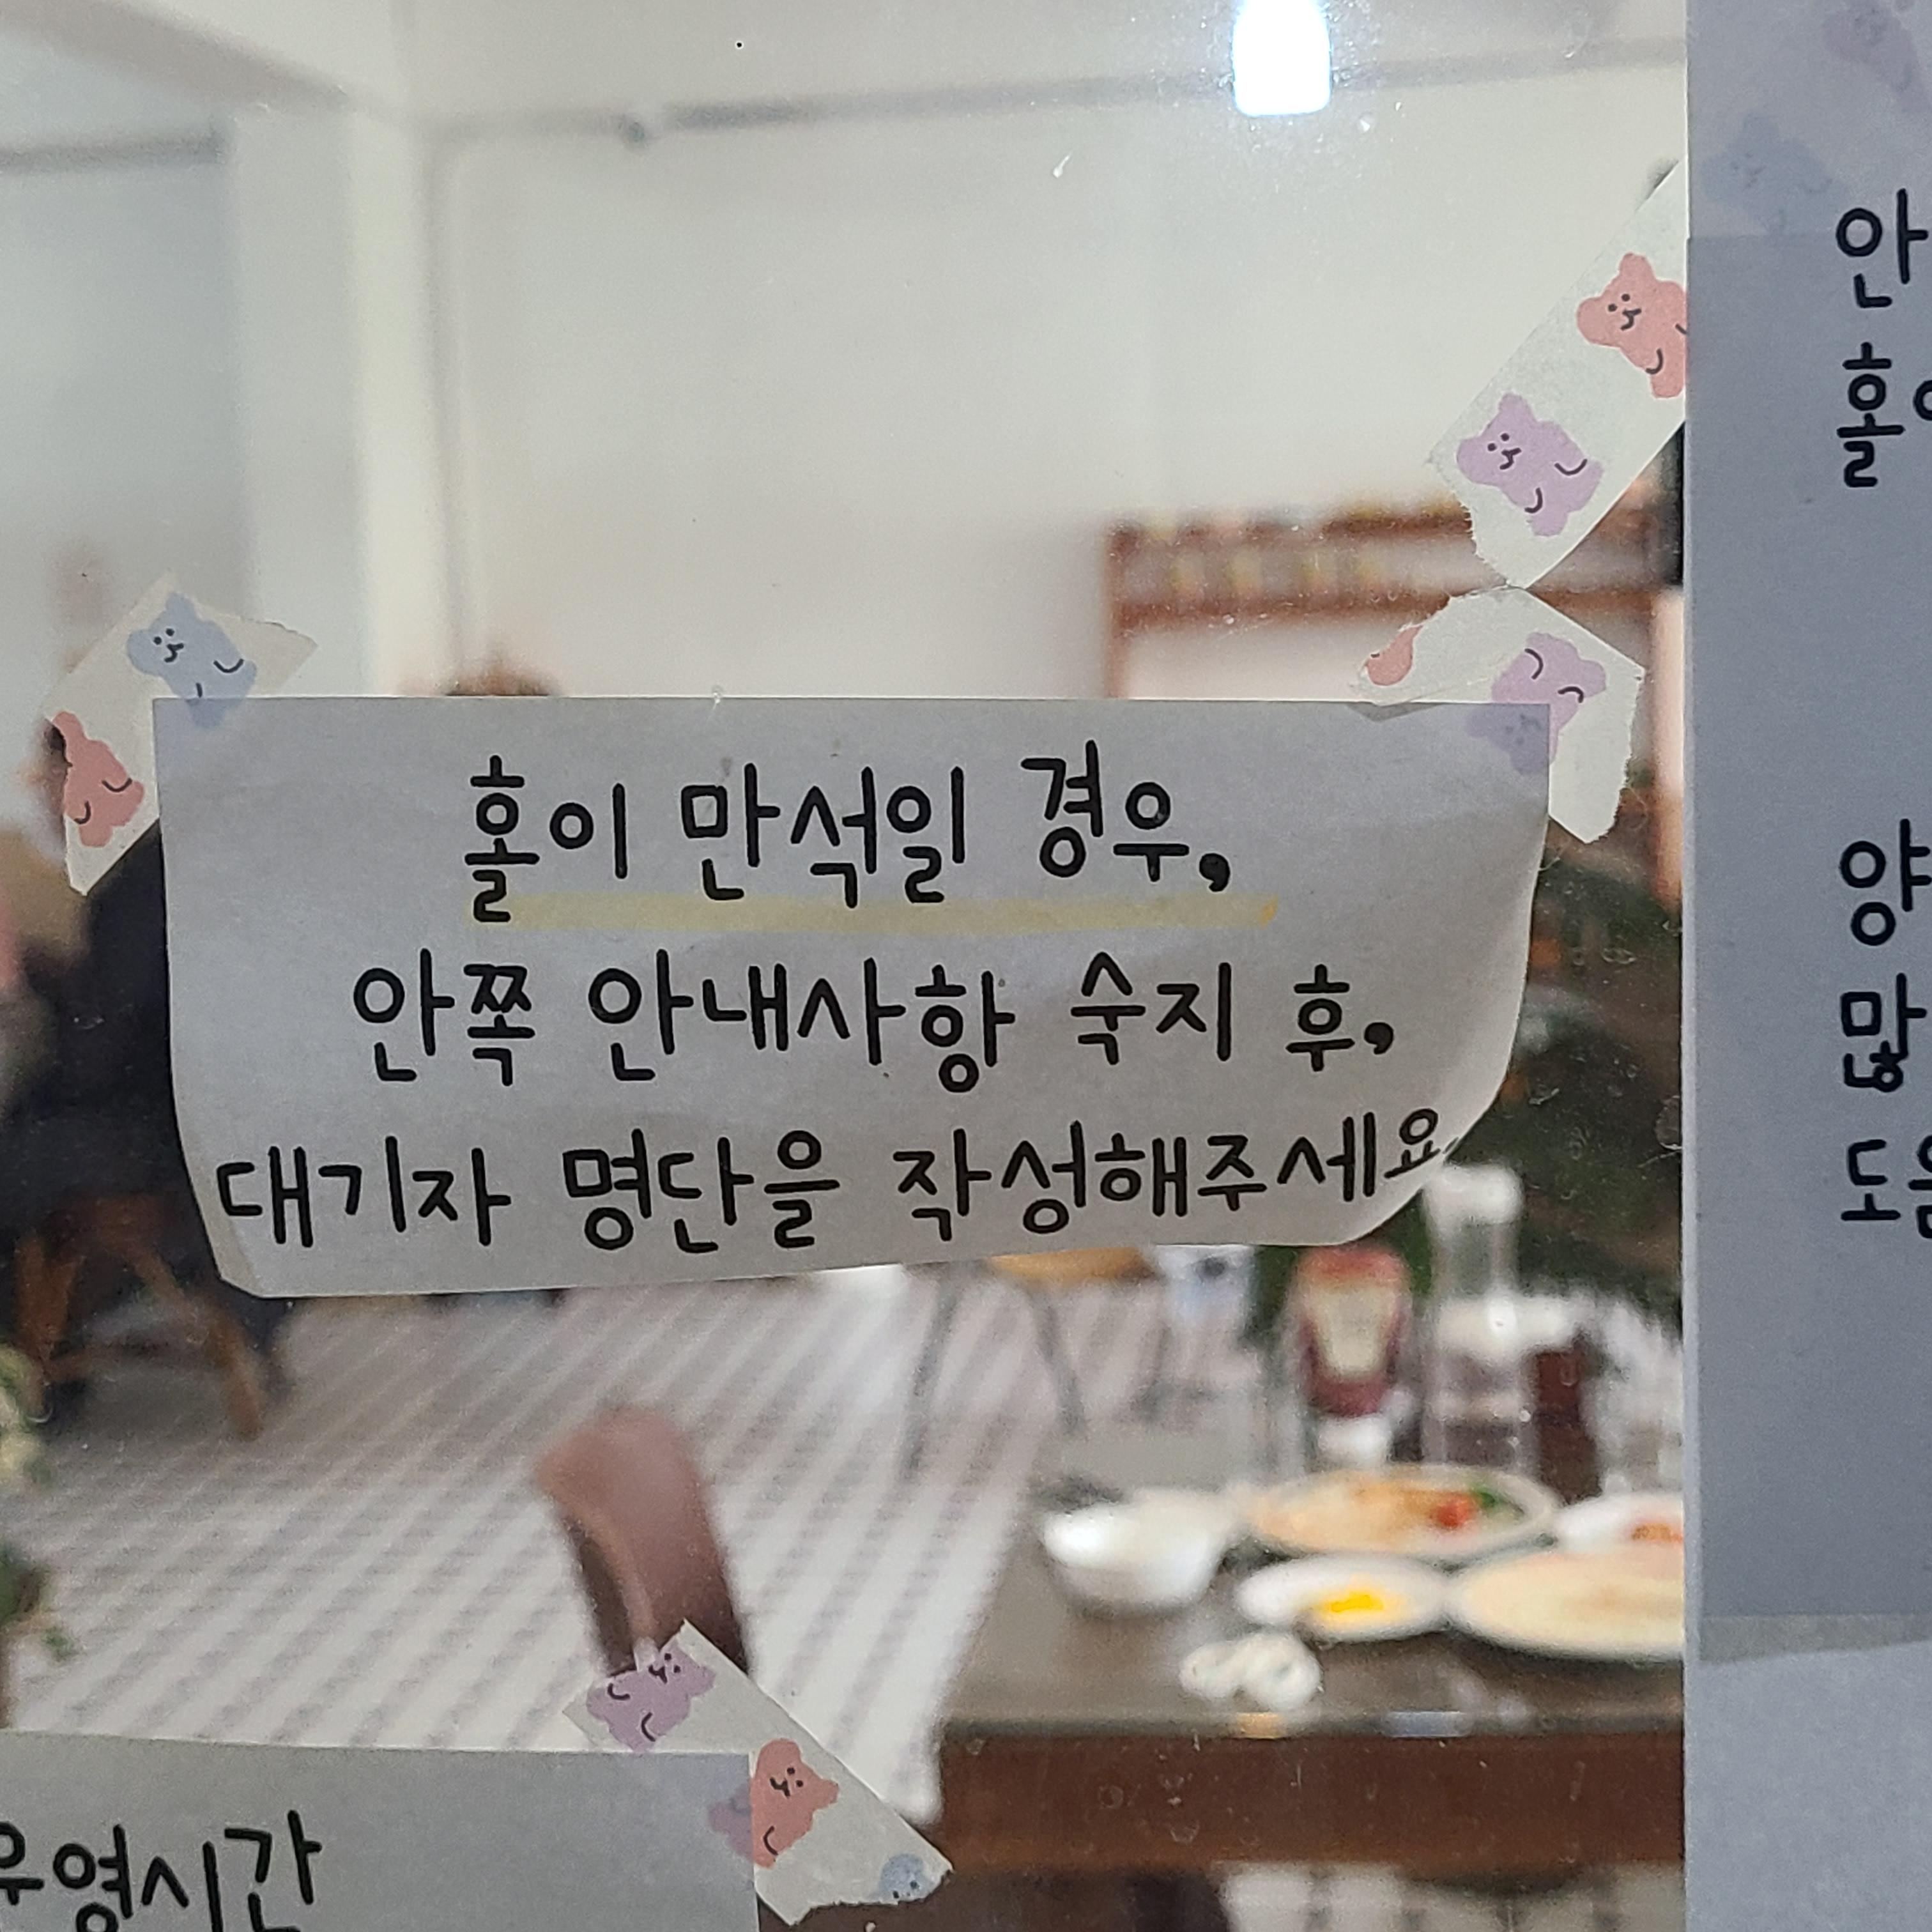 홀이 만석일 경우,
안쪽 안내사항 숙지 후,
대기자 명단을 작성해주세요.
운영시간